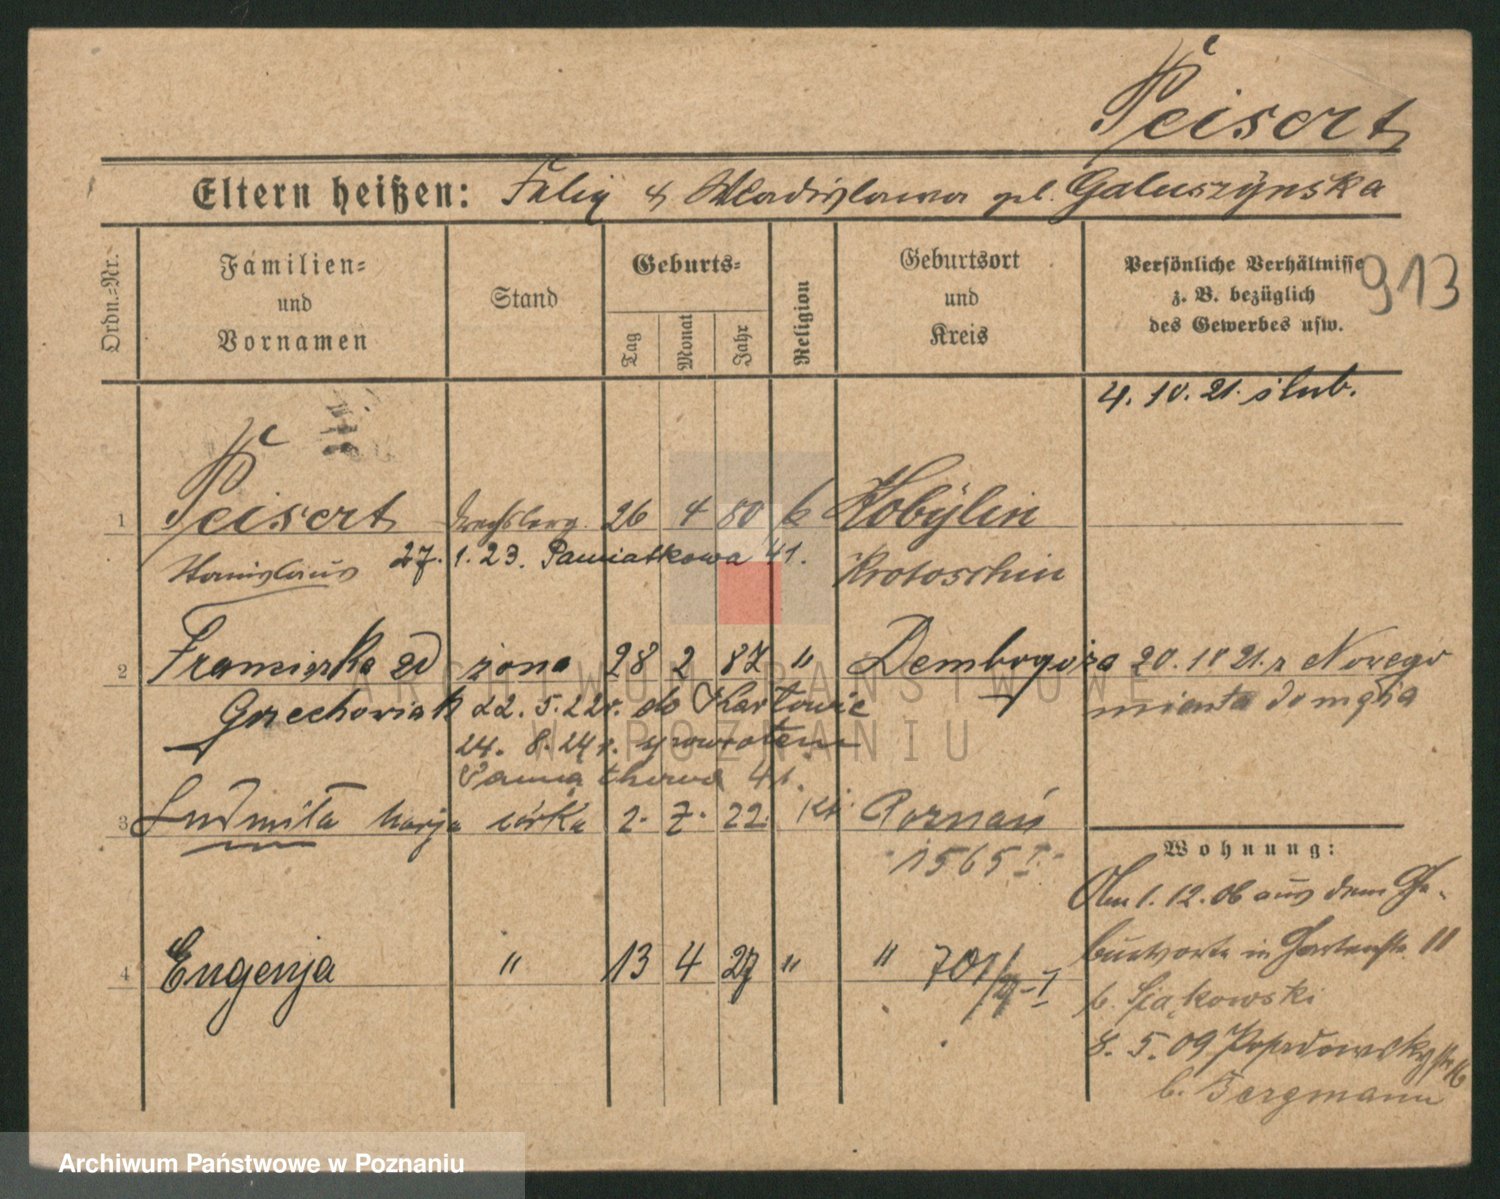 Peisert
Eltern heißen: Felix & Wladislawa geb. Galuszynska
Ordn.-Nr.
Familien-
und
Vornamen
Stand
Geburts-
Tag
Monat
Jahr
Religion
Geburtsort
und
Kreis
Persönliche Verhältnisse
z. B. bezüglich
des Gewerbes usw.
913
4. 10. 21. ślub.
1 Peisert 26 4 80 k Kobylin
Stanislaus 27. 1. 23. Pamiatkowa 41. Krotoschin
2 Franciszka zd żona 28 2 87 " Dembogóra 20. 10 21. z Nowego
Grzechowiak 22. 5. 22 r. do Kartowic miasta do męża
24. 8. 24 r. z powrotem
Pamiątkowa 41.
3 Ludmiła Marja córka 2. 7. 22. kt. Poznań
1565 I.
4 Eugenja " 13 4 27 " " 701/4-I
Wohnung:
Am 1. 12. 06 aus dem Ge-
burtsorte in Gartenstr. 11
b. Siąkowski
8. 5. 09
b. Bergmann
ARCHIWUM PAŃSTWOWE
W POZNANIU
Archiwum Państwowe w Poznaniu